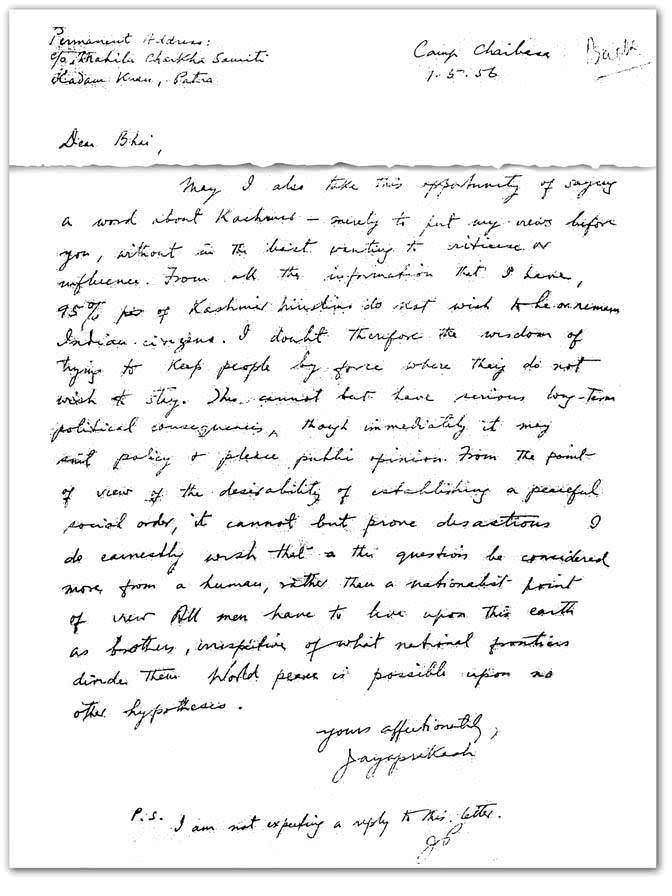 Permanent Address:
c/o Mahila Charkha Samiti
Kadam Kuan, Patna
Camp Chaibasa
7.5.56
Dear Bhai,
May I also take this opportunity of saying
a word about Kashmir – merely to put my views before
you, without in the least wanting to criticise or
influence. From all the information that I have,
95% of Kashmir Muslims do not wish to be or remain
Indian citizens. I doubt therefore the wisdom of
trying to keep people by force where they do not
wish to stay. This cannot but have serious long-term
political consequences, though immediately it may
suit policy & please public opinion. From the point
of view of the desirability of establishing a peaceful
social order, it cannot but prove disastrous I
do earnestly wish that this question be considered
more from a human, rather than a nationalist point
of view All men have to live upon this earth
as brothers, irrespective of what national frontiers
divide them World peace is possible upon no
other hypothesis.
yours affectionately,
Jayaprakash
P.S. I am not expecting a reply to this letter.
JP